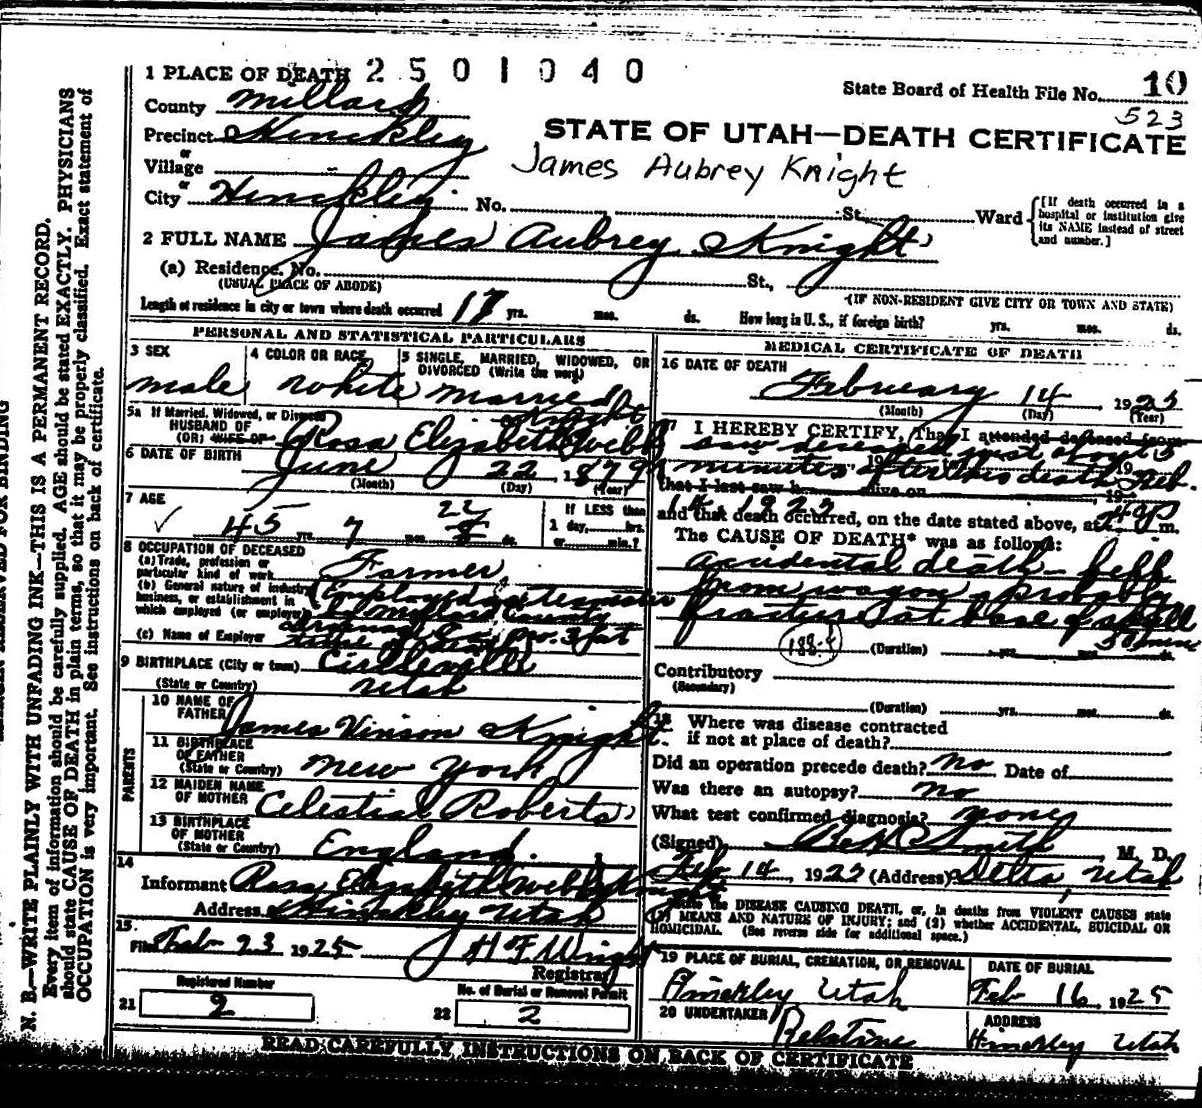 1 PLACE OF DEATH 2 5 0 1 0 4 0
State Board of Health File No. 10
523
County Millard
Precinct Hinckley
STATE OF UTAH—DEATH CERTIFICATE
or
Village
James Aubrey Knight
or
City Hinckley No. St. Ward
[If death occurred in a hospital or institution give its NAME instead of street and number.]
2 FULL NAME James Aubrey Knight
(a) Residence. No. St.,
(USUAL PLACE OF ABODE)
(IF NON-RESIDENT GIVE CITY OR TOWN AND STATE)
Length of residence in city or town where death occurred 17 yrs. mos. ds. How long in U. S., if foreign birth? yrs. mos. ds.
PERSONAL AND STATISTICAL PARTICULARS
3 SEX
male
4 COLOR OR RACE
white
5 SINGLE, MARRIED, WIDOWED, OR DIVORCED (Write the word)
married
5a If Married, Widowed, or Divorced
HUSBAND OF
(OR) WIFE OF Rosa Elizabeth Webb Knight
6 DATE OF BIRTH June 22 1879
(Month) (Day) (Year)
7 AGE
45 yrs. 7 mos. 22 ds.
If LESS than
1 day, hrs.
or min.?
8 OCCUPATION OF DECEASED
(a) Trade, profession or particular kind of work Farmer
(b) General nature of industry, business, or establishment in which employed (or employer) Employed
Millard County
(c) Name of Employer
9 BIRTHPLACE (City or town) Circleville
(State or Country) Utah
PARENTS
10 NAME OF FATHER James Vinson Knight
11 BIRTHPLACE OF FATHER
(State or Country) New York
12 MAIDEN NAME OF MOTHER Celestial Roberts
13 BIRTHPLACE OF MOTHER
(State or Country) England.
14
Informant Rosa Elizabeth Webb Knight
Address Hinckley Utah
15.
Filed Feb 23 1925 H F Wright
Registrar
Registered Number
21 2
No. of Burial or Removal Permit
22 2
MEDICAL CERTIFICATE OF DEATH
16 DATE OF DEATH
February 14 1925
(Month) (Day) (Year)
17 I HEREBY CERTIFY, That I attended deceased from
saw deceased just about 5
minutes after his death Feb.
that I last saw h alive on 19
14, 1925
and that death occurred, on the date stated above, at m.
The CAUSE OF DEATH* was as follows:
accidental death - fell
from wagon, probably
fracture at base of skull
(Duration) yrs. mos. ds.
Contributory
(Secondary)
(Duration) yrs. mos. ds.
18 Where was disease contracted
if not at place of death?
Did an operation precede death? No Date of
Was there an autopsy? no
What test confirmed diagnosis? none
(Signed) Smith, M. D.
Feb 14, 1925 (Address) Delta, Utah
State the DISEASE CAUSING DEATH, or, in deaths from VIOLENT CAUSES state
(1) MEANS AND NATURE OF INJURY; and (2) whether ACCIDENTAL, SUICIDAL OR
HOMICIDAL. (See reverse side for additional space.)
19 PLACE OF BURIAL, CREMATION, OR REMOVAL
Hinckley Utah
DATE OF BURIAL
Feb 16, 1925
20 UNDERTAKER
Relatives
ADDRESS
Hinckley Utah
READ CAREFULLY INSTRUCTIONS ON BACK OF CERTIFICATE
N. B.—WRITE PLAINLY WITH UNFADING INK—THIS IS A PERMANENT RECORD.
Every item of information should be carefully supplied. AGE should be stated EXACTLY. PHYSICIANS
should state CAUSE OF DEATH in plain terms, so that it may be properly classified. Exact statement of
OCCUPATION is very important. See instructions on back of certificate.
RESERVED FOR BINDING